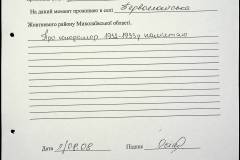 На даний момент проживаю в селі Первомайське
Жовтневого району Миколаївської області.
Про голодомор 1932-1933р пам'ятаю
Дата 2/09.08 Підпис